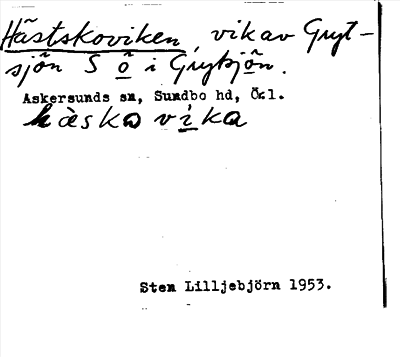 Hästskoviken, vik av Gryt-
sjön S ö i Grytsjön.
Askersunds sn, Sundbo hd, Ör.l.
hàsko vika
Sten Lilljebjörn 1953.